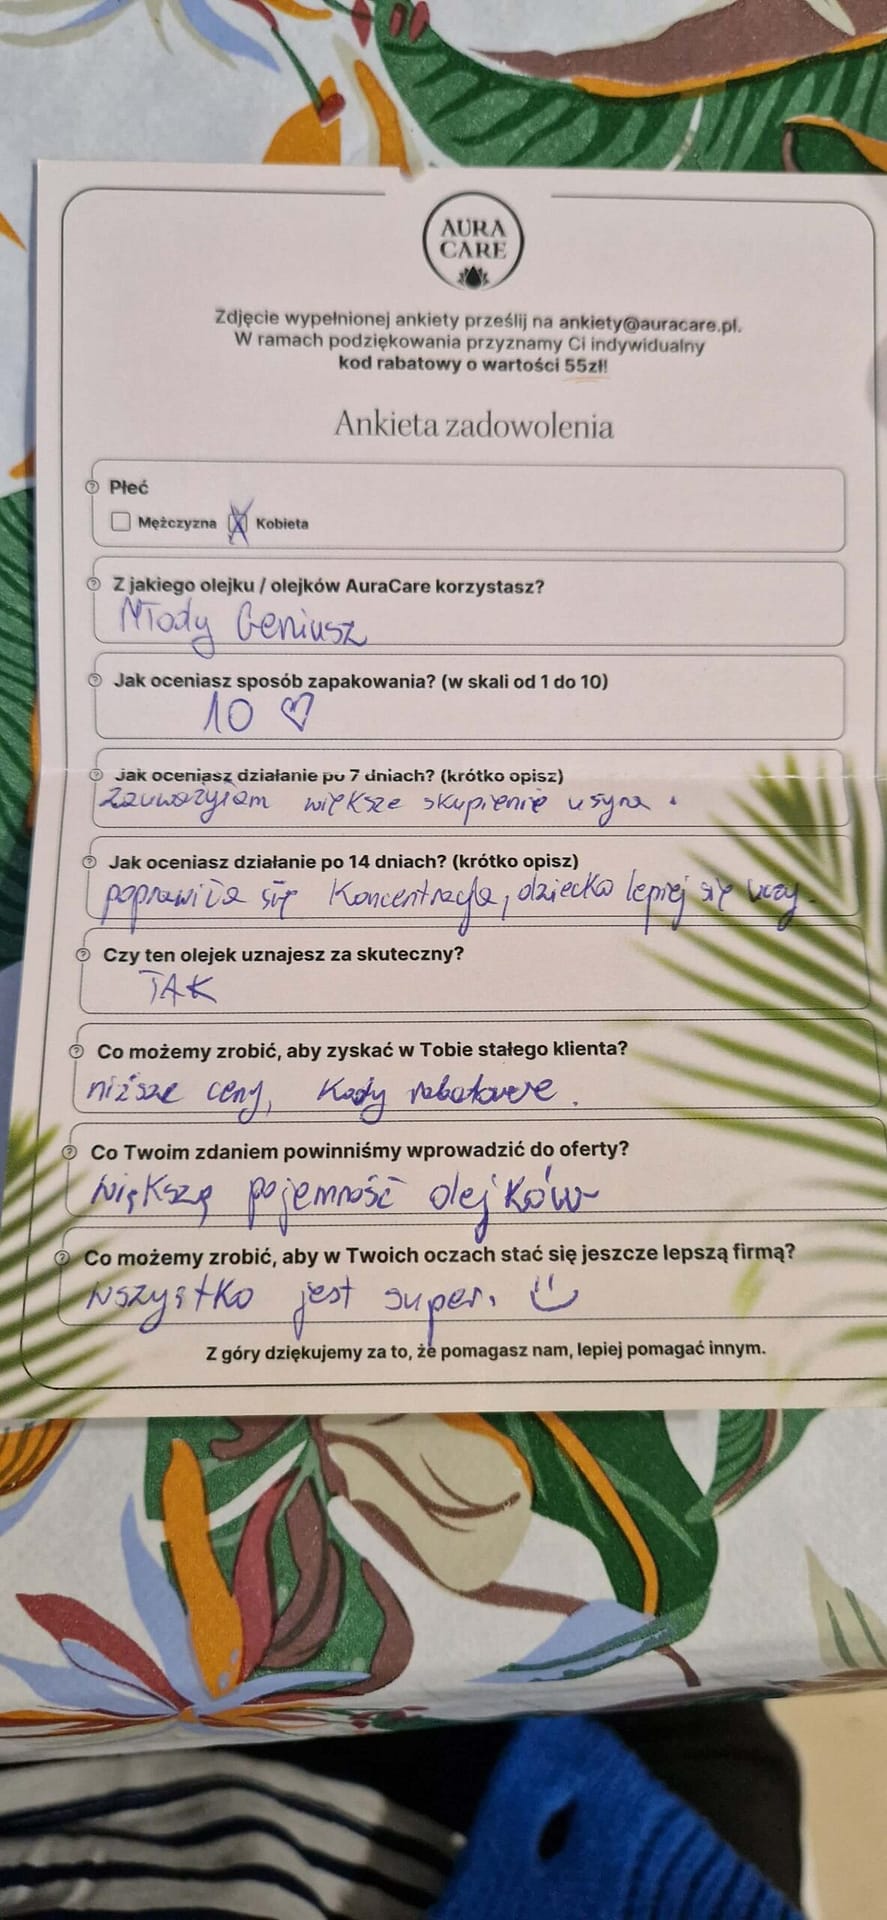 AURA
CARE
Zdjęcie wypełnionej ankiety prześlij na ankiety@auracare.pl.
W ramach podziękowania przyznamy Ci indywidualny
kod rabatowy o wartości 55zł!
Ankieta zadowolenia
Płeć
Mężczyzna X Kobieta
Z jakiego olejku / olejków AuraCare korzystasz?
Młody Geniusz
Jak oceniasz sposób zapakowania? (w skali od 1 do 10)
10 ♡
Jak oceniasz działanie po 7 dniach? (krótko opisz)
Zauważyłam większe skupienie u syna.
Jak oceniasz działanie po 14 dniach? (krótko opisz)
poprawiła się koncentracja, dziecko lepiej się uczy.
Czy ten olejek uznajesz za skuteczny?
TAK
Co możemy zrobić, aby zyskać w Tobie stałego klienta?
niższe ceny, kody rabatowe.
Co Twoim zdaniem powinniśmy wprowadzić do oferty?
Większą pojemność olejków
Co możemy zrobić, aby w Twoich oczach stać się jeszcze lepszą firmą?
Wszystko jest super. ☺
Z góry dziękujemy za to, że pomagasz nam, lepiej pomagać innym.